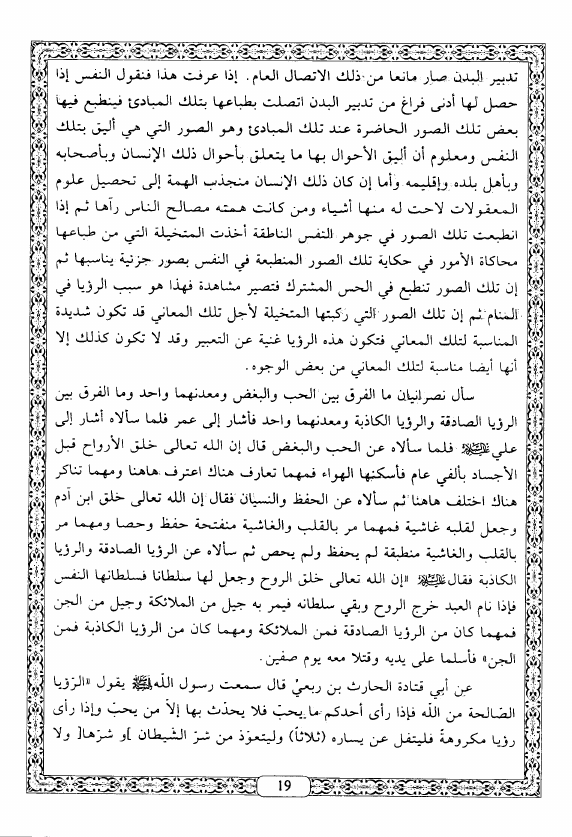 تدبير البدن صار مانعا من ذلك الاتصال العام. إذا عرفت هذا فنقول النفس إذا
حصل لها أدنى فراغ من تدبير البدن اتصلت بطباعها بتلك المبادئ فينطبع فيها
بعض تلك الصور الحاضرة عند تلك المبادئ وهو الصور التي هي أليق بتلك
النفس ومعلوم أن أليق الأحوال بها ما يتعلق بأحوال ذلك الإنسان وبأصحابه
وبأهل بلده وإقليمه وأما إن كان ذلك الإنسان منجذب الهمة إلى تحصيل علوم
المعقولات لاحت له منها أشياء ومن كانت همته مصالح الناس رآها ثم إذا
انطبعت تلك الصور في جوهر النفس الناطقة أخذت المتخيلة التي من طباعها
محاكاة الأمور في حكاية تلك الصور المنطبعة في النفس بصور جزئية يناسبها ثم
إن تلك الصور تنطبع في الحس المشترك فتصير مشاهدة فهذا هو سبب الرؤيا في
المنام ثم إن تلك الصور التي ركبتها المتخيلة لأجل تلك المعاني قد تكون شديدة
المناسبة لتلك المعاني فتكون هذه الرؤيا غنية عن التعبير وقد لا تكون كذلك إلا
أنها أيضا مناسبة لتلك المعاني من بعض الوجوه.
سأل نصرانيان ما الفرق بين الحب والبغض ومعدنهما واحد وما الفرق بين
الرؤيا الصادقة والرؤيا الكاذبة ومعدنهما واحد فأشار إلى عمر فلما سألاه أشار إلى
علي فلما سألاه عن الحب والبغض قال إن الله تعالى خلق الأرواح قبل
الأجساد بألفي عام فأسكنها الهواء فمهما تعارف هناك اعترف هاهنا ومهما تناكر
هناك اختلف هاهنا ثم سألاه عن الحفظ والنسيان فقال إن الله تعالى خلق ابن آدم
وجعل لقلبه غاشية فمهما مر بالقلب والغاشية منفتحة حفظ وحصا ومهما مر
بالقلب والغاشية منطبقة لم يحفظ ولم يحص ثم سألاه عن الرؤيا الصادقة والرؤيا
الكاذبة فقال «إن الله تعالى خلق الروح وجعل لها سلطانا فسلطانها النفس
فإذا نام العبد خرج الروح وبقي سلطانه فيمر به جيل من الملائكة وجيل من الجن
فمهما كان من الرؤيا الصادقة فمن الملائكة ومهما كان من الرؤيا الكاذبة فمن
الجن» فأسلما على يديه وقتلا معه يوم صفين.
عن أبي قتادة الحارث بن ربعيُ قال سمعت رسول اللّه ﷺ يقول «الرّؤيا
الصّالحة من اللّه فإذا رأى أحدكم ما يحبّ فلا يحدّث بها إلاّ من يحبّ وإذا رأى
رؤيا مكروهةً فليتفل عن يساره (ثلاثاً) وليتعوّذ من شرّ الشّيطان ]و شرّها[ ولا
19